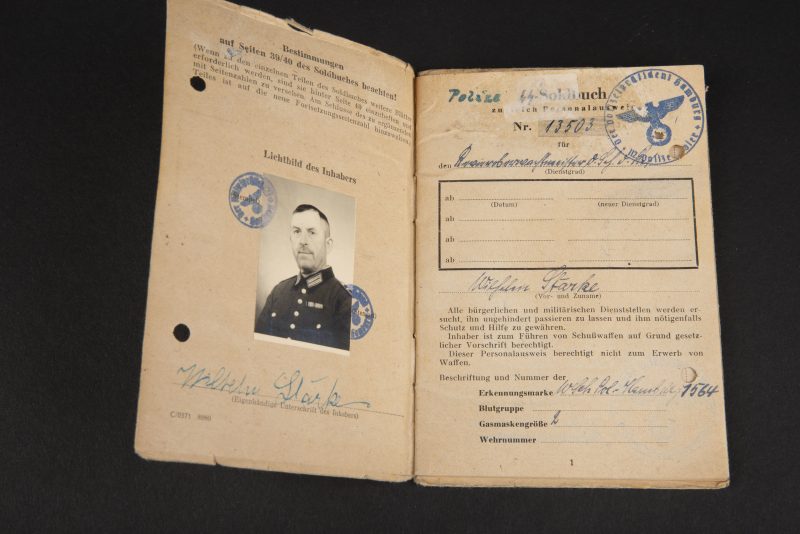 Bestimmungen
auf Seiten 39/40 des Soldbuches beachten!
(Wenn zu den einzelnen Teilen des Soldbuches weitere Blätter
erforderlich werden, sind sie hinter Seite 40 einzuheften und
mit Seitenzahlen zu versehen. Am Schlusse des zu ergänzenden
Teiles ist auf die neue Fortsetzungsseitenzahl hinzuweisen.)
Lichtbild des Inhabers
Wilhelm Starke
(Eigenhändige Unterschrift des Inhabers)
C/0371
Polizei Soldbuch
zugleich Personalausweis
Nr. 13503
für
den
(Dienstgrad)
ab
(Datum) (neuer Dienstgrad)
ab
ab
ab
Wilhelm Starke
(Vor- und Zuname)
Alle bürgerlichen und militärischen Dienststellen werden er-
sucht, ihn ungehindert passieren zu lassen und ihm nötigenfalls
Schutz und Hilfe zu gewähren.
Inhaber ist zum Führen von Schußwaffen auf Grund gesetz-
licher Vorschrift berechtigt.
Dieser Personalausweis berechtigt nicht zum Erwerb von
Waffen.
Beschriftung und Nummer der
Erkennungsmarke 1564
Blutgruppe
Gasmaskengröße 2
Wehrnummer
1
Der Polizeipräsident Hamburg